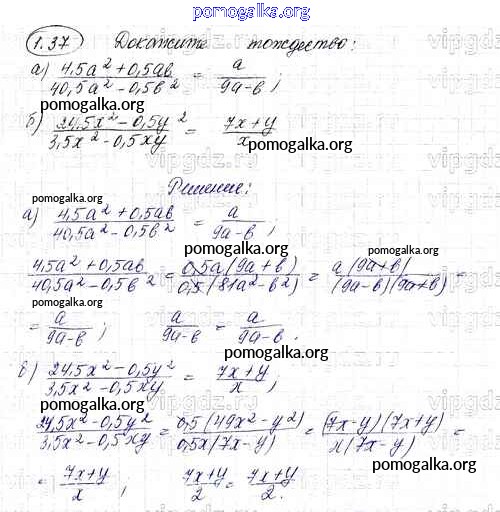 pomogalka.org
1.37 Докажите тождество:
а) (4,5a² + 0,5ab)/(40,5a² - 0,5b²) = a/(9a-b);
pomogalka.org
б) (24,5x² - 0,5y²)/(3,5x² - 0,5xy) = (7x+y)/x
pomogalka.org
pomogalka.org
Решение:
pomogalka.org
а) (4,5a² + 0,5ab)/(40,5a² - 0,5b²) = a/(9a-b);
pomogalka.org
pomogalka.org
(4,5a² + 0,5ab)/(40,5a² - 0,5b²) = 0,5a(9a+b)/0,5(81a² - b²) = a(9a+b)/(9a-b)(9a+b) =
pomogalka.org
= a/(9a-b); a/(9a-b) = a/(9a-b).
pomogalka.org
в) (24,5x² - 0,5y²)/(3,5x² - 0,5xy) = (7x+y)/x;
pomogalka.org
pomogalka.org
(24,5x² - 0,5y²)/(3,5x² - 0,5xy) = 0,5(49x² - y²)/0,5x(7x-y) = (7x-y)(7x+y)/x(7x-y) =
pomogalka.org
pomogalka.org
= (7x+y)/x; (7x+y)/2 = (7x+y)/2.
pomogalka.org